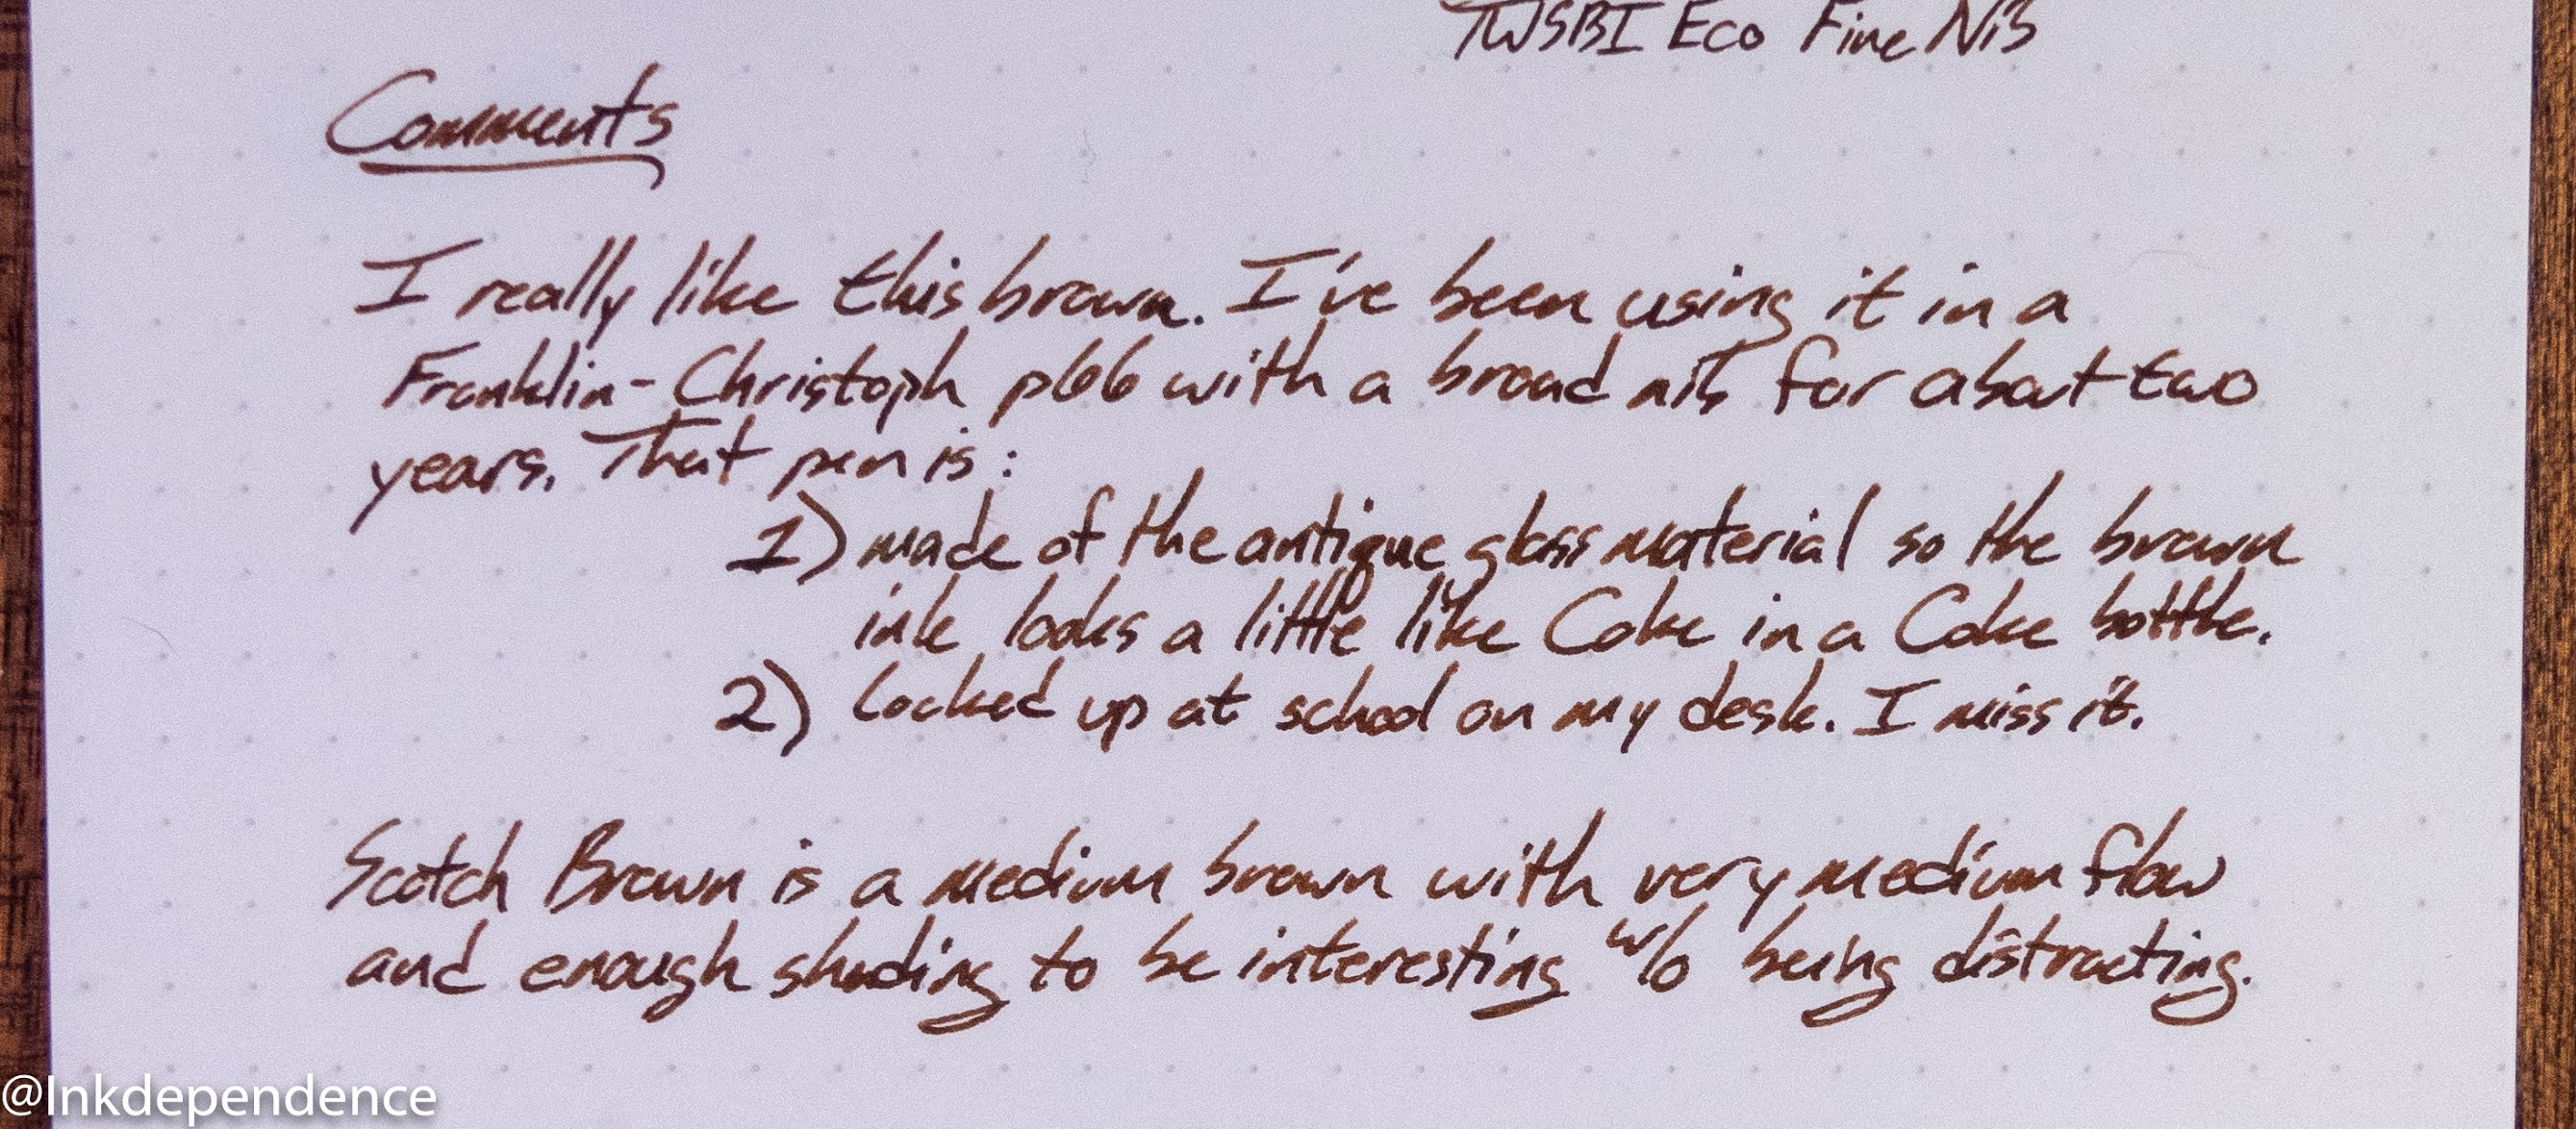 TWSBI Eco Fine Nib
Comments
I really like this brown. I've been using it in a
Franklin-Christoph p66 with a broad nib for about two
years. That pen is:
1) made of the antique glass material so the brown
ink looks a little like Coke in a Coke bottle.
2) locked up at school on my desk. I miss it.
Scotch Brown is a medium brown with very medium flow
and enough shading to be interesting w/o being distracting.
@Inkdependence